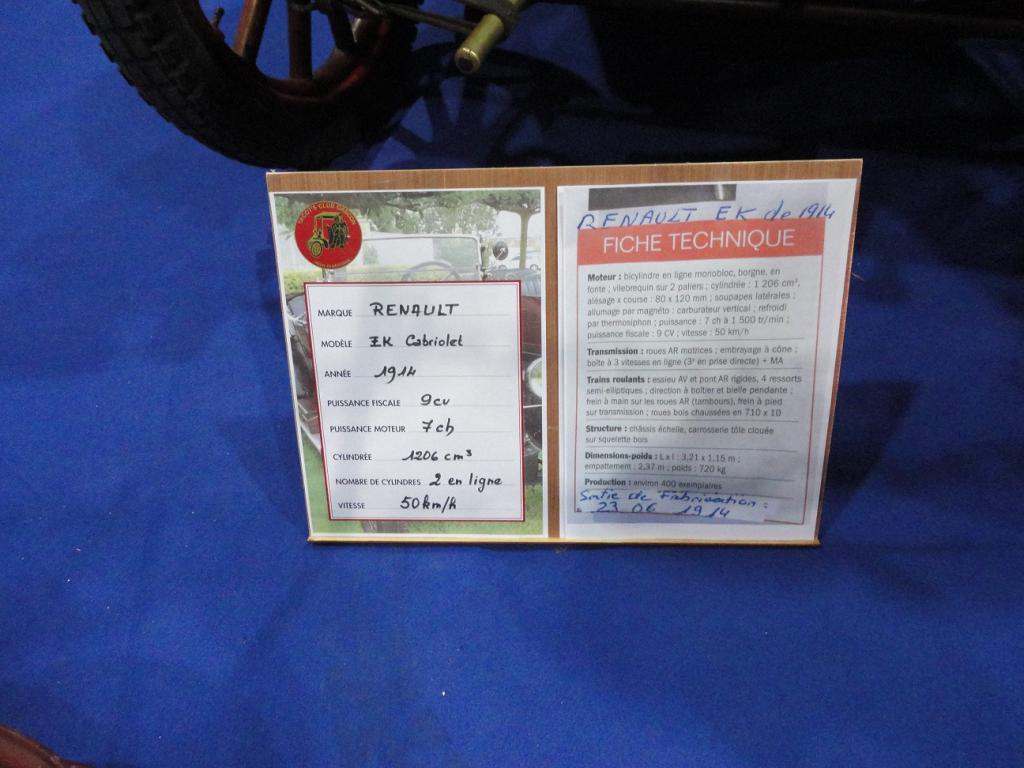 MARQUE RENAULT
MODÈLE EK Cabriolet
ANNÉE 1914
PUISSANCE FISCALE 9cv
PUISSANCE MOTEUR 7ch
CYLINDRÉE 1206 cm³
NOMBRE DE CYLINDRES 2 en ligne
VITESSE 50km/h
RENAULT EK de 1914
FICHE TECHNIQUE
Moteur : bicylindre en ligne monobloc, borgne, en
fonte ; vilebrequin sur 2 paliers ; cylindrée : 1 206 cm³,
alésage x course : 80 x 120 mm ; soupapes latérales ;
allumage par magnéto ; carburateur vertical ; refroidi
par thermosiphon ; puissance : 7 ch à 1 500 tr/min ;
puissance fiscale : 9 CV ; vitesse : 50 km/h
Transmission : roues AR motrices ; embrayage à cône ;
boîte à 3 vitesses en ligne (3e en prise directe) + MA
Trains roulants : essieu AV et pont AR rigides, 4 ressorts
semi-elliptiques ; direction à boîtier et bielle pendante ;
frein à main sur les roues AR (tambours), frein à pied
sur transmission ; roues bois chaussées en 710 x 10
Structure : châssis échelle, carrosserie tôle clouée
sur squelette bois
Dimensions-poids : L x l : 3,21 x 1,15 m ;
empattement : 2,37 m ; poids : 720 kg
Production : environ 400 exemplaires
Sortie de Fabrication :
23 06 1914